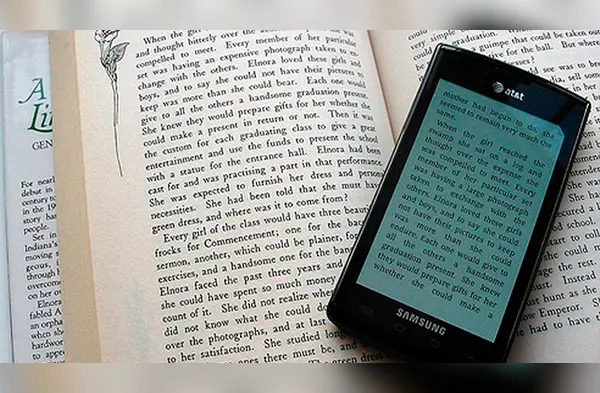 A
Li
GEN
For nearly
debut in
century to
in the 19
story has
people.
Set in
Indiana's
moving s
geous,
through h
overcome
on her o
Elnora
fabled A
an orpha
when sh
to appr
When the girl
and thought bitterly over the
compelled to meet. Every member of her particular
set was having an expensive photograph taken to ex-
change with the others. Elnora loved these girls and
boys, and to say she could not have their pictures to
keep was more than she could bear. Each one would
give to all the others a handsome graduation present.
She knew they would prepare gifts for her whether she
could make a present in return or not. Then it was
the custom for each graduating class to give a great
entertainment and use the funds to present the school
with a statue for the entrance hall. Elnora had been
cast for and was practising a part in that performance.
She was expected to furnish her dress and personal
necessities. She had been told that she must have a
green dress, and where was it to come from?
Every girl of the class would have three beautiful
frocks for Commencement; one for the
sermon, another, which could be plainer, for
exercises, and a handsome one for the ba
Elnora faced the past three years and
she could have spent so much money
count of it. She did not realize
did not know what she could do
over the photographs, and at last
to her satisfaction. She studied long
ones there must be, and
The green dress
very simple
graduation,
guimpe that could be taken out
for the ball. But where
at&t
mother had begun to do, she
seemed to remain very much the
same.
When the girl reached the
swamp she sat on a log and
thought over the expense she
was compelled to meet. Every
member of her particular set
was having a large photograph
taken to exchange with the
others. Elnora loved these girls
and boys, and to say she could
not have their pictures to keep
was more than she could
endure. Each one would give to
all the others a handsome
graduation present. She knew
they would prepare gifts for her
whether she could make a
SAMSUNG